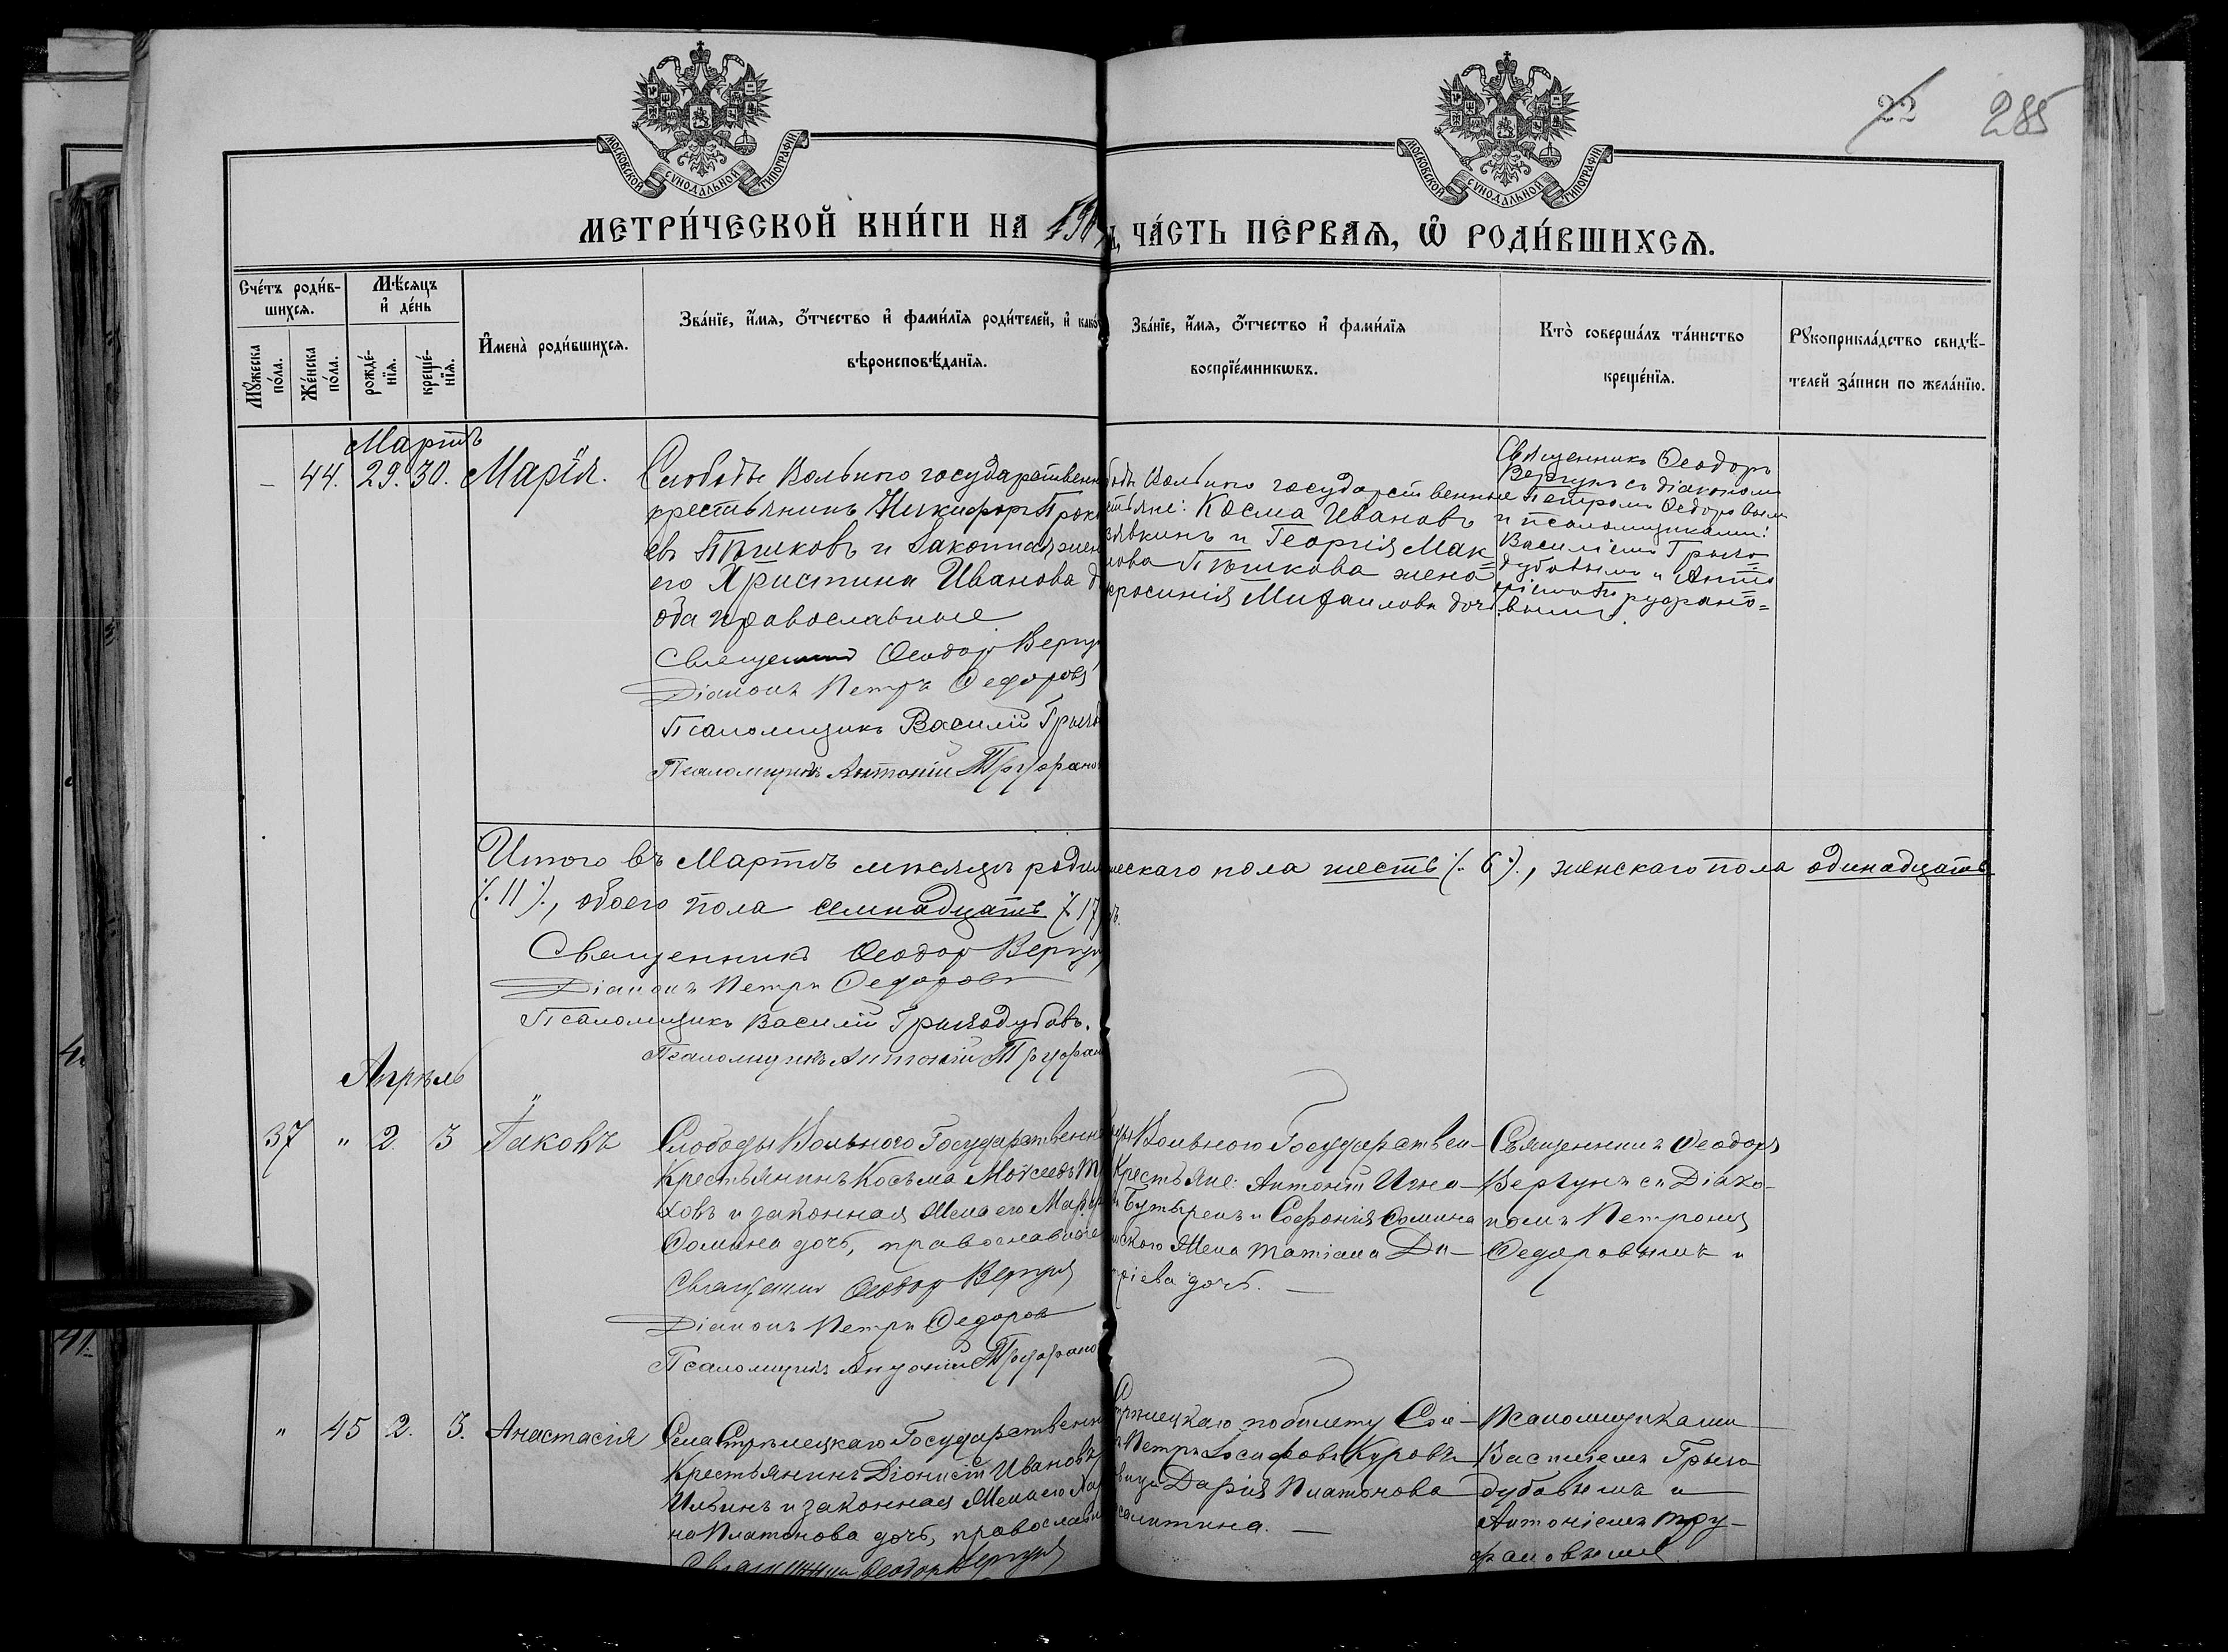 22 285
МОСКОВСКОЙ СѴНОДАЛЬНОЙ ТИПОГРАФІИ
МОСКОВСКОЙ СѴНОДАЛЬНОЙ ТИПОГРАФІИ
МЕТРИ́ЧЕСКОЙ КНИ́ГИ НА 190
ЧА́СТЬ ПЕ́РВАѦ, Ѽ РОДИ́ВШИХСѦ.
Сче́тъ роди́в-
шихсѧ.
Мꙋ́жеска
по́ла.
Же́нска
по́ла.
Мѣ́сяцъ
и҆ де́нь
рожде́-
нїѧ.
креще́-
нїѧ.
И҆мена̀ роди́вшихсѧ.
Зва́нїе, и҆́мѧ, ѻ҆́тчество и҆ фами́лїѧ роди́телей, и҆ како́
вѣроисповѣ́данїѧ.
Зва́нїе, и҆́мѧ, ѻ҆́тчество и҆ фами́лїѧ
воспрїе́мникѡвъ.
Кто̀ соверша́лъ та́инство
креще́нїѧ.
Рꙋкоприкла́дство свидѣ́-
телей за́писи по жела́нїю.
Мартъ
— 44. 29. 30. Марія.
Слободы Вольного государственн
крестьянинъ Никифоръ Прок
евъ Пѣшковъ и законная жен
его Христина Иванова д
оба православные
Священник Ѳеодор Вергун
Діаконъ Петръ Ѳедоровъ
Псаломщикъ Василій Грызо
Псаломщикъ Антоній Труфано
боды Вольного государственные
стьяне: Косма Ивановъ
зявкинъ и Георгія Мак=
мова Пѣшкова жена
фросинія Михаилова дочь
Священникъ Ѳеодоръ
Вергунъ съ діакономъ
Петромъ Ѳедоровымъ
и псаломщиками:
Василіемъ Грызо=
дубовымъ и Анто
ніемъ Труфано=
вымъ.
Итого въ Мартѣ мѣсяцѣ родил
жескаго пола шесть (. 6 .), женскаго пола одинадцать
(. 11 .), обоего пола семнадцать (. 17
Священникъ Ѳеодор Вергун
Діаконъ Петръ Ѳедоровъ
Псаломщикъ Василій Грызодубовъ.
Псаломщикъ Антоній Труфан
Апрѣль
37 " 2. 3 Іаковъ
Слободы Вольного Государственн
Крестьянинъ Косьма Моѵсеевъ
ховъ и законная Жена его Мар
Ѳомина дочь, православные
Священник Ѳеодор Вергун
Діаконъ Петръ Ѳедоров
Псаломщикъ Антоній Труфано
оды Вольного Государствен-
Крестьяне: Антоній Игна-
Бутырець и Софонія Ѳомина
ского Жена Татіана Ди-
тріева дочь. —
Священникъ Ѳеодоръ
Вергунъ съ Діако-
номъ Петромъ
Ѳедоровымъ и
" 45 2. 3. Анастасія
Села Стрѣлецкаго Государственн
Крестьянинъ Діонисій Ивановъ
Ильинъ и законная Жена его
на Платонова дочь, православн
Священник Ѳеодор Вергун
Стрѣлецкаго по билету
Петръ Іосифовъ Куровъ
вица Дарія Платонова
салитина. —
Псаломщиками
Василіемъ Грызо
дубовымъ и
Антоніемъ Тру-
фановымъ